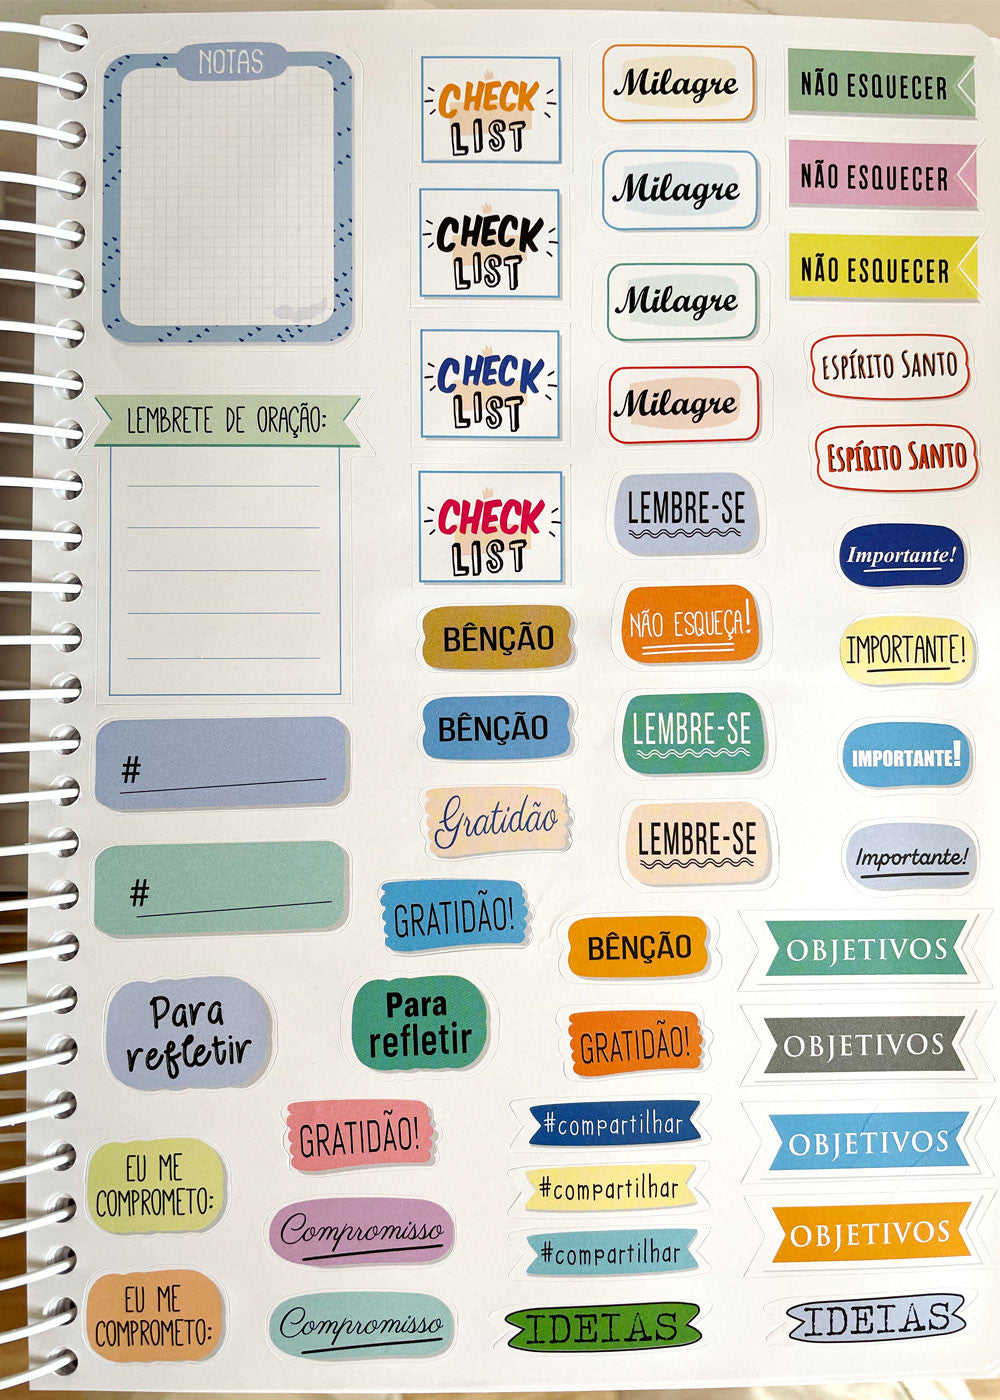 NOTAS
LEMBRETE DE ORAÇÃO:
#
#
Para
refletir
EU ME
COMPROMETO:
EU ME
COMPROMETO:
CHECK
LIST
CHECK
LIST
CHECK
LIST
CHECK
LIST
BÊNÇÃO
BÊNÇÃO
Gratidão
GRATIDÃO!
Para
refletir
GRATIDÃO!
Compromisso
Compromisso
Milagre
Milagre
Milagre
Milagre
LEMBRE-SE
NÃO ESQUEÇA!
LEMBRE-SE
LEMBRE-SE
BÊNÇÃO
GRATIDÃO!
#compartilhar
#compartilhar
#compartilhar
IDEIAS
NÃO ESQUECER
NÃO ESQUECER
NÃO ESQUECER
ESPÍRITO SANTO
ESPÍRITO SANTO
Importante!
IMPORTANTE!
IMPORTANTE!
Importante!
OBJETIVOS
OBJETIVOS
OBJETIVOS
OBJETIVOS
IDEIAS